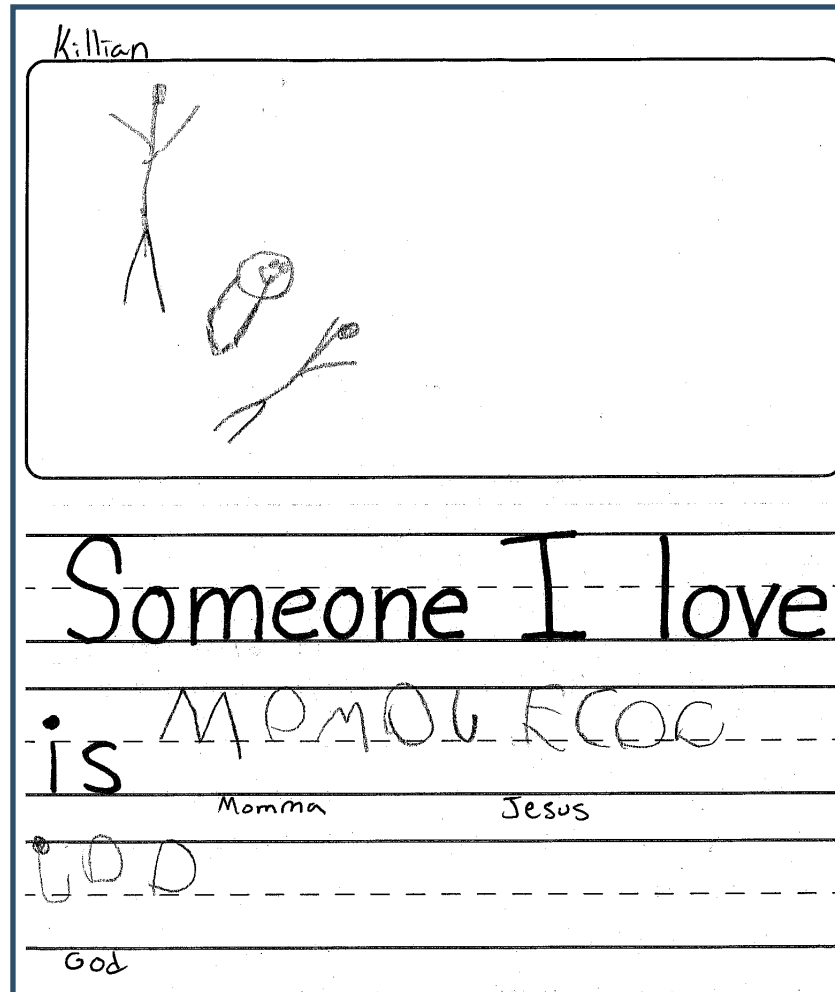 Killian
Someone I love
is MOMOL ECOC
Momma Jesus
GOD
God